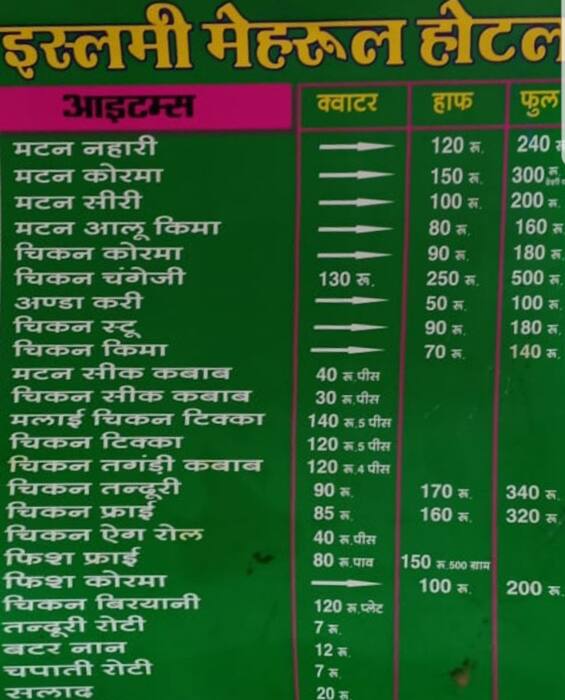 इस्लमी मेहरूल होटल
आइटम्स क्वाटर हाफ फुल
मटन नहारी 120 रू. 240 रू
मटन कोरमा 150 रू. 300 रू.
मटन सीरी 100 रू. 200 रू.
मटन आलू किमा 80 रू. 160 रू
चिकन कोरमा 90 रू. 180 रू.
चिकन चंगेजी 130 रू. 250 रू. 500 रू.
अण्डा करी 50 रू. 100 रू.
चिकन स्टू 90 रू. 180 रू.
चिकन किमा 70 रू. 140 रू.
मटन सीक कबाब 40 रू.पीस
चिकन सीक कबाब 30 रू.पीस
मलाई चिकन टिक्का 140 रू.5 पीस
चिकन टिक्का 120 रू.5 पीस
चिकन तगंड़ी कबाब 120 रू.4 पीस
चिकन तन्दूरी 90 रू. 170 रू. 340 रू.
चिकन फ्राई 85 रू. 160 रू. 320 रू.
चिकन ऐग रोल 40 रू.पीस
फिश फ्राई 80 रू.पाव 150 रू.500 ग्राम
फिश कोरमा 100 रू. 200 रू.
चिकन बिरयानी 120 रू.प्लेट
तन्दूरी रोटी 7 रू.
बटर नान 12 रू.
चपाती रोटी 7 रू.
सलाद 20 रू.